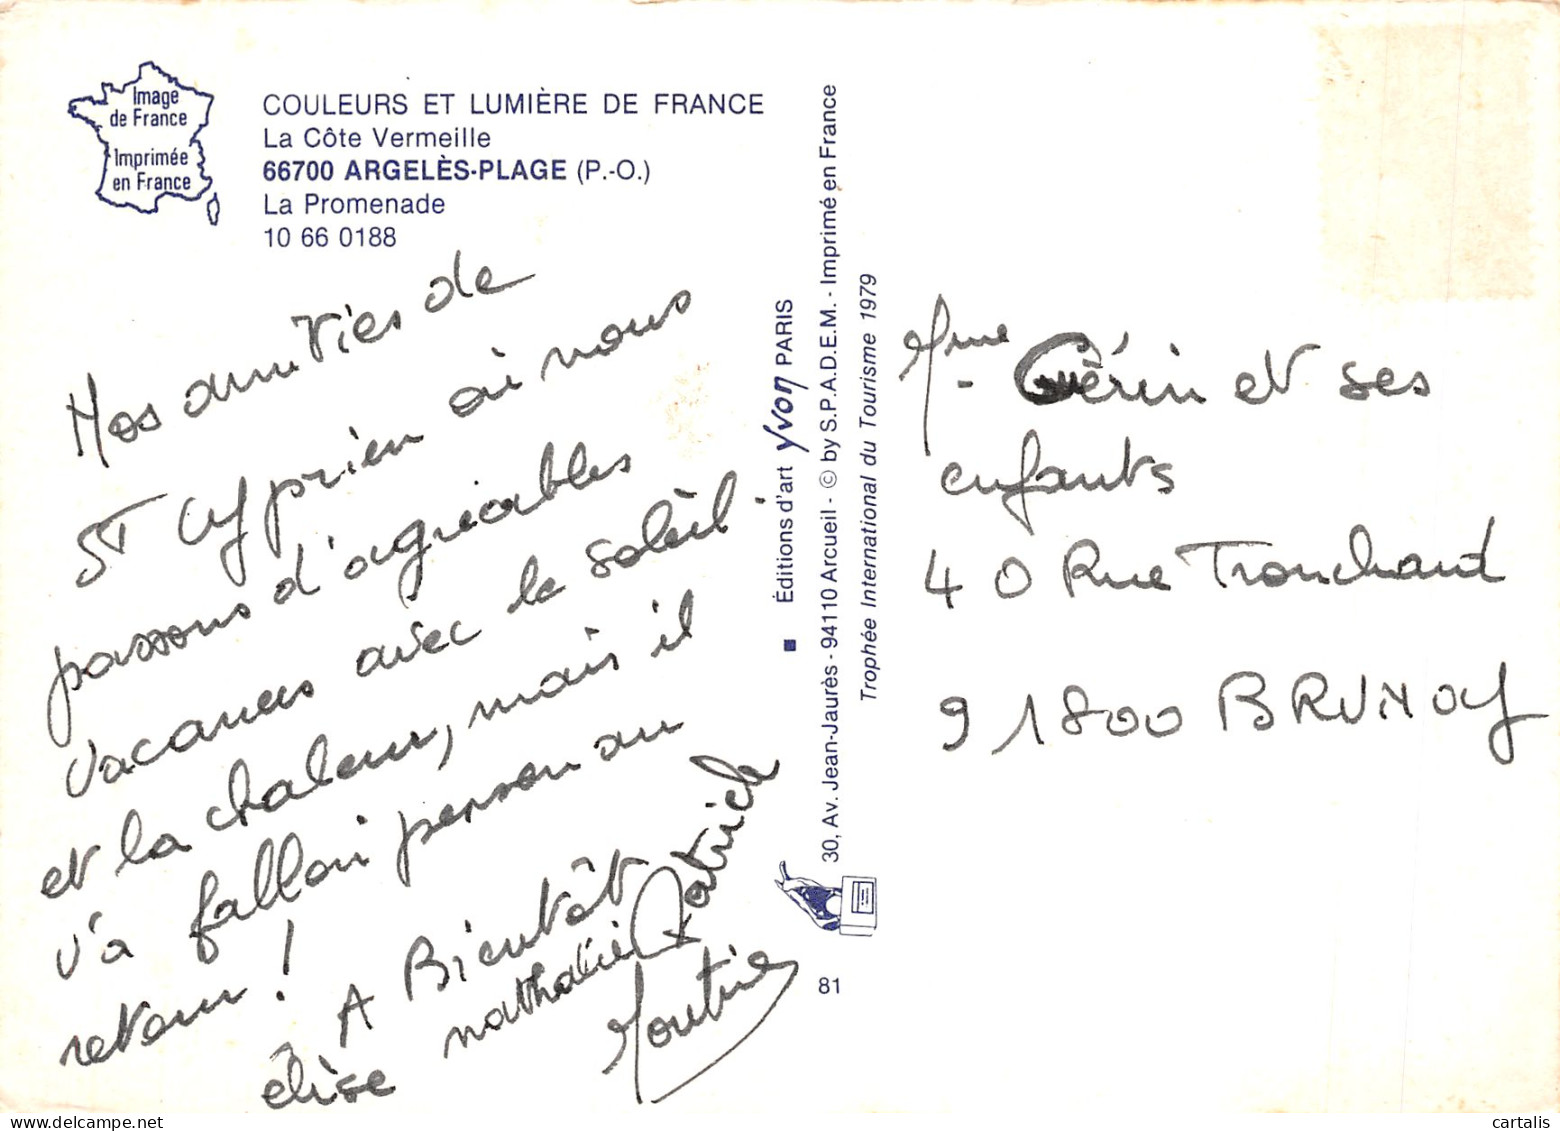 Image
de France
Imprimée
en France
COULEURS ET LUMIÈRE DE FRANCE
La Côte Vermeille
66700 ARGELÈS-PLAGE (P.-O.)
La Promenade
10 66 0188
Nos amitiés de
St Cyprien où nous
passons d'agréables
vacances avec le soleil.
et la chaleur, mais il
va falloir penser au
retour !
A Bientôt
élise nathalie Patrick
Éditions d'art yvon PARIS
30, Av. Jean-Jaurès - 94110 Arcueil - © by S.P.A.D.E.M. - Imprimé en France
Trophée International du Tourisme 1979
81
Mme Guérin et ses
enfants
40 Rue Tronchard
91800 BRUNOY
cartalis